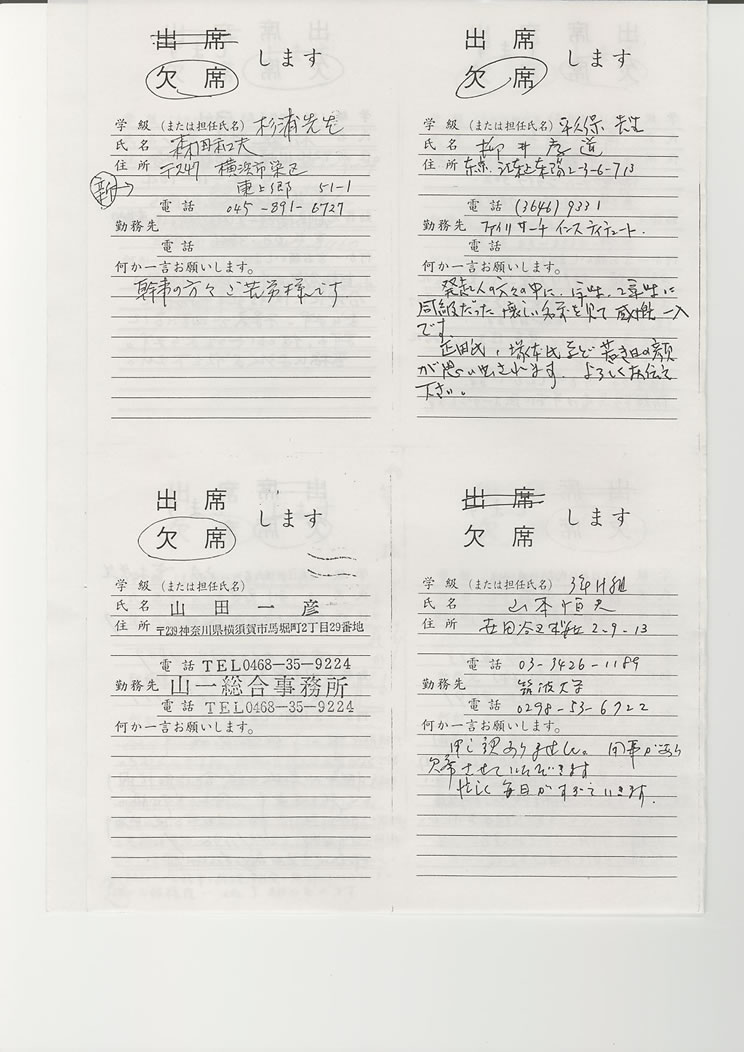 出席
欠席
します
学級 (または担任氏名) 杉浦先生
氏名 森田和夫
住所 〒247 横浜市栄区
新→ 東上郷 51-1
電話 045-891-6727
勤務先
電話
何か一言お願いします。
幹事の方々ご苦労様です
出席
欠席
します
学級 (または担任氏名) 先生
氏名 柳井 道
住所 東京 2-3-6-713
電話 (3646) 9331
勤務先 インスティテュート.
電話
何か一言お願いします。
発起人の方々の中に、
同級だった懐しい名前を見て 一入
です。
正田氏、塚本氏など若き日の顔
が思い出されます. よろしくお伝え
下さい。
出席
欠席
します
学級 (または担任氏名)
氏名 山田一彦
住所 〒239神奈川県横須賀市馬堀町2丁目29番地
電話 TEL0468-35-9224
勤務先 山一総合事務所
電話 TEL0468-35-9224
何か一言お願いします。
出席
欠席
します
学級 (または担任氏名) 3年H組
氏名 山本恒夫
住所 世田谷区桜丘 2-9-13
電話 03-3426-1189
勤務先 筑波大学
電話 0298-53-6722
何か一言お願いします。
申し訳ありません。 があり
欠席させていただきます
忙しく毎日がすぎていきます.